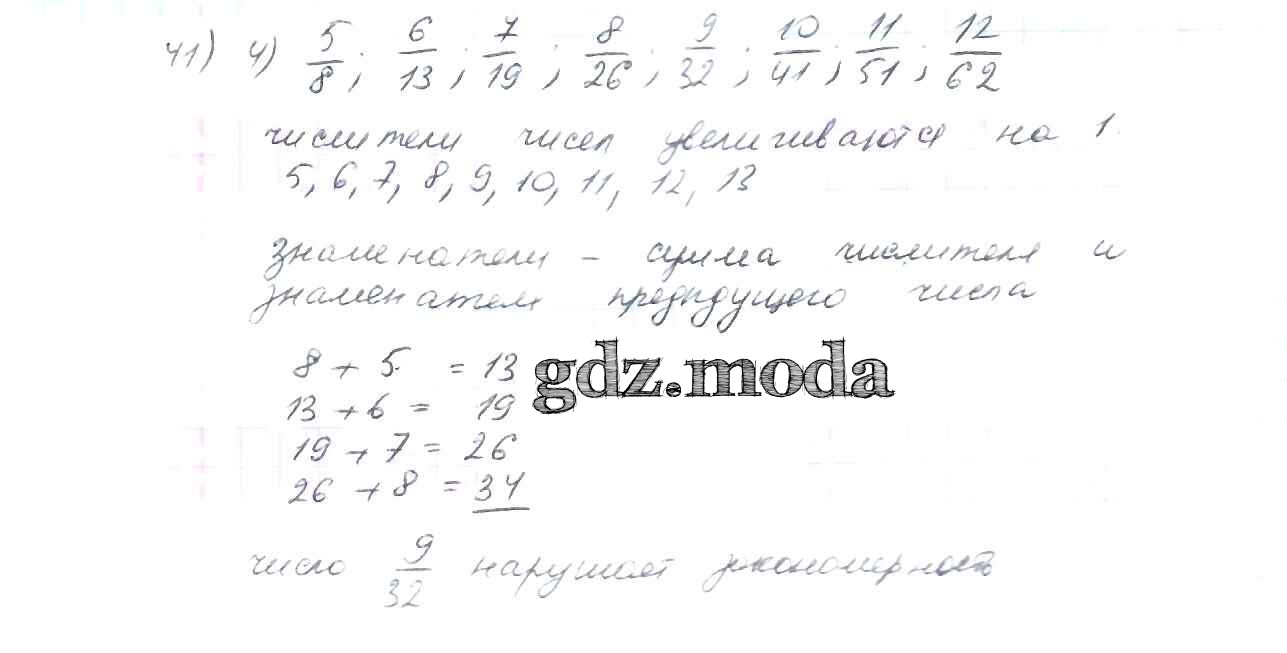 41) 4) 5/8; 6/13; 7/19; 8/26; 9/32; 10/41; 11/51; 12/62
числители чисел увеличиваются на 1.
5, 6, 7, 8, 9, 10, 11, 12, 13
Знаменатели – сумма числителя и
знаменателя предыдущего числа
8 + 5 = 13
13 + 6 = 19
19 + 7 = 26
26 + 8 = 34
gdz.moda
число 9/32 нарушает закономерность